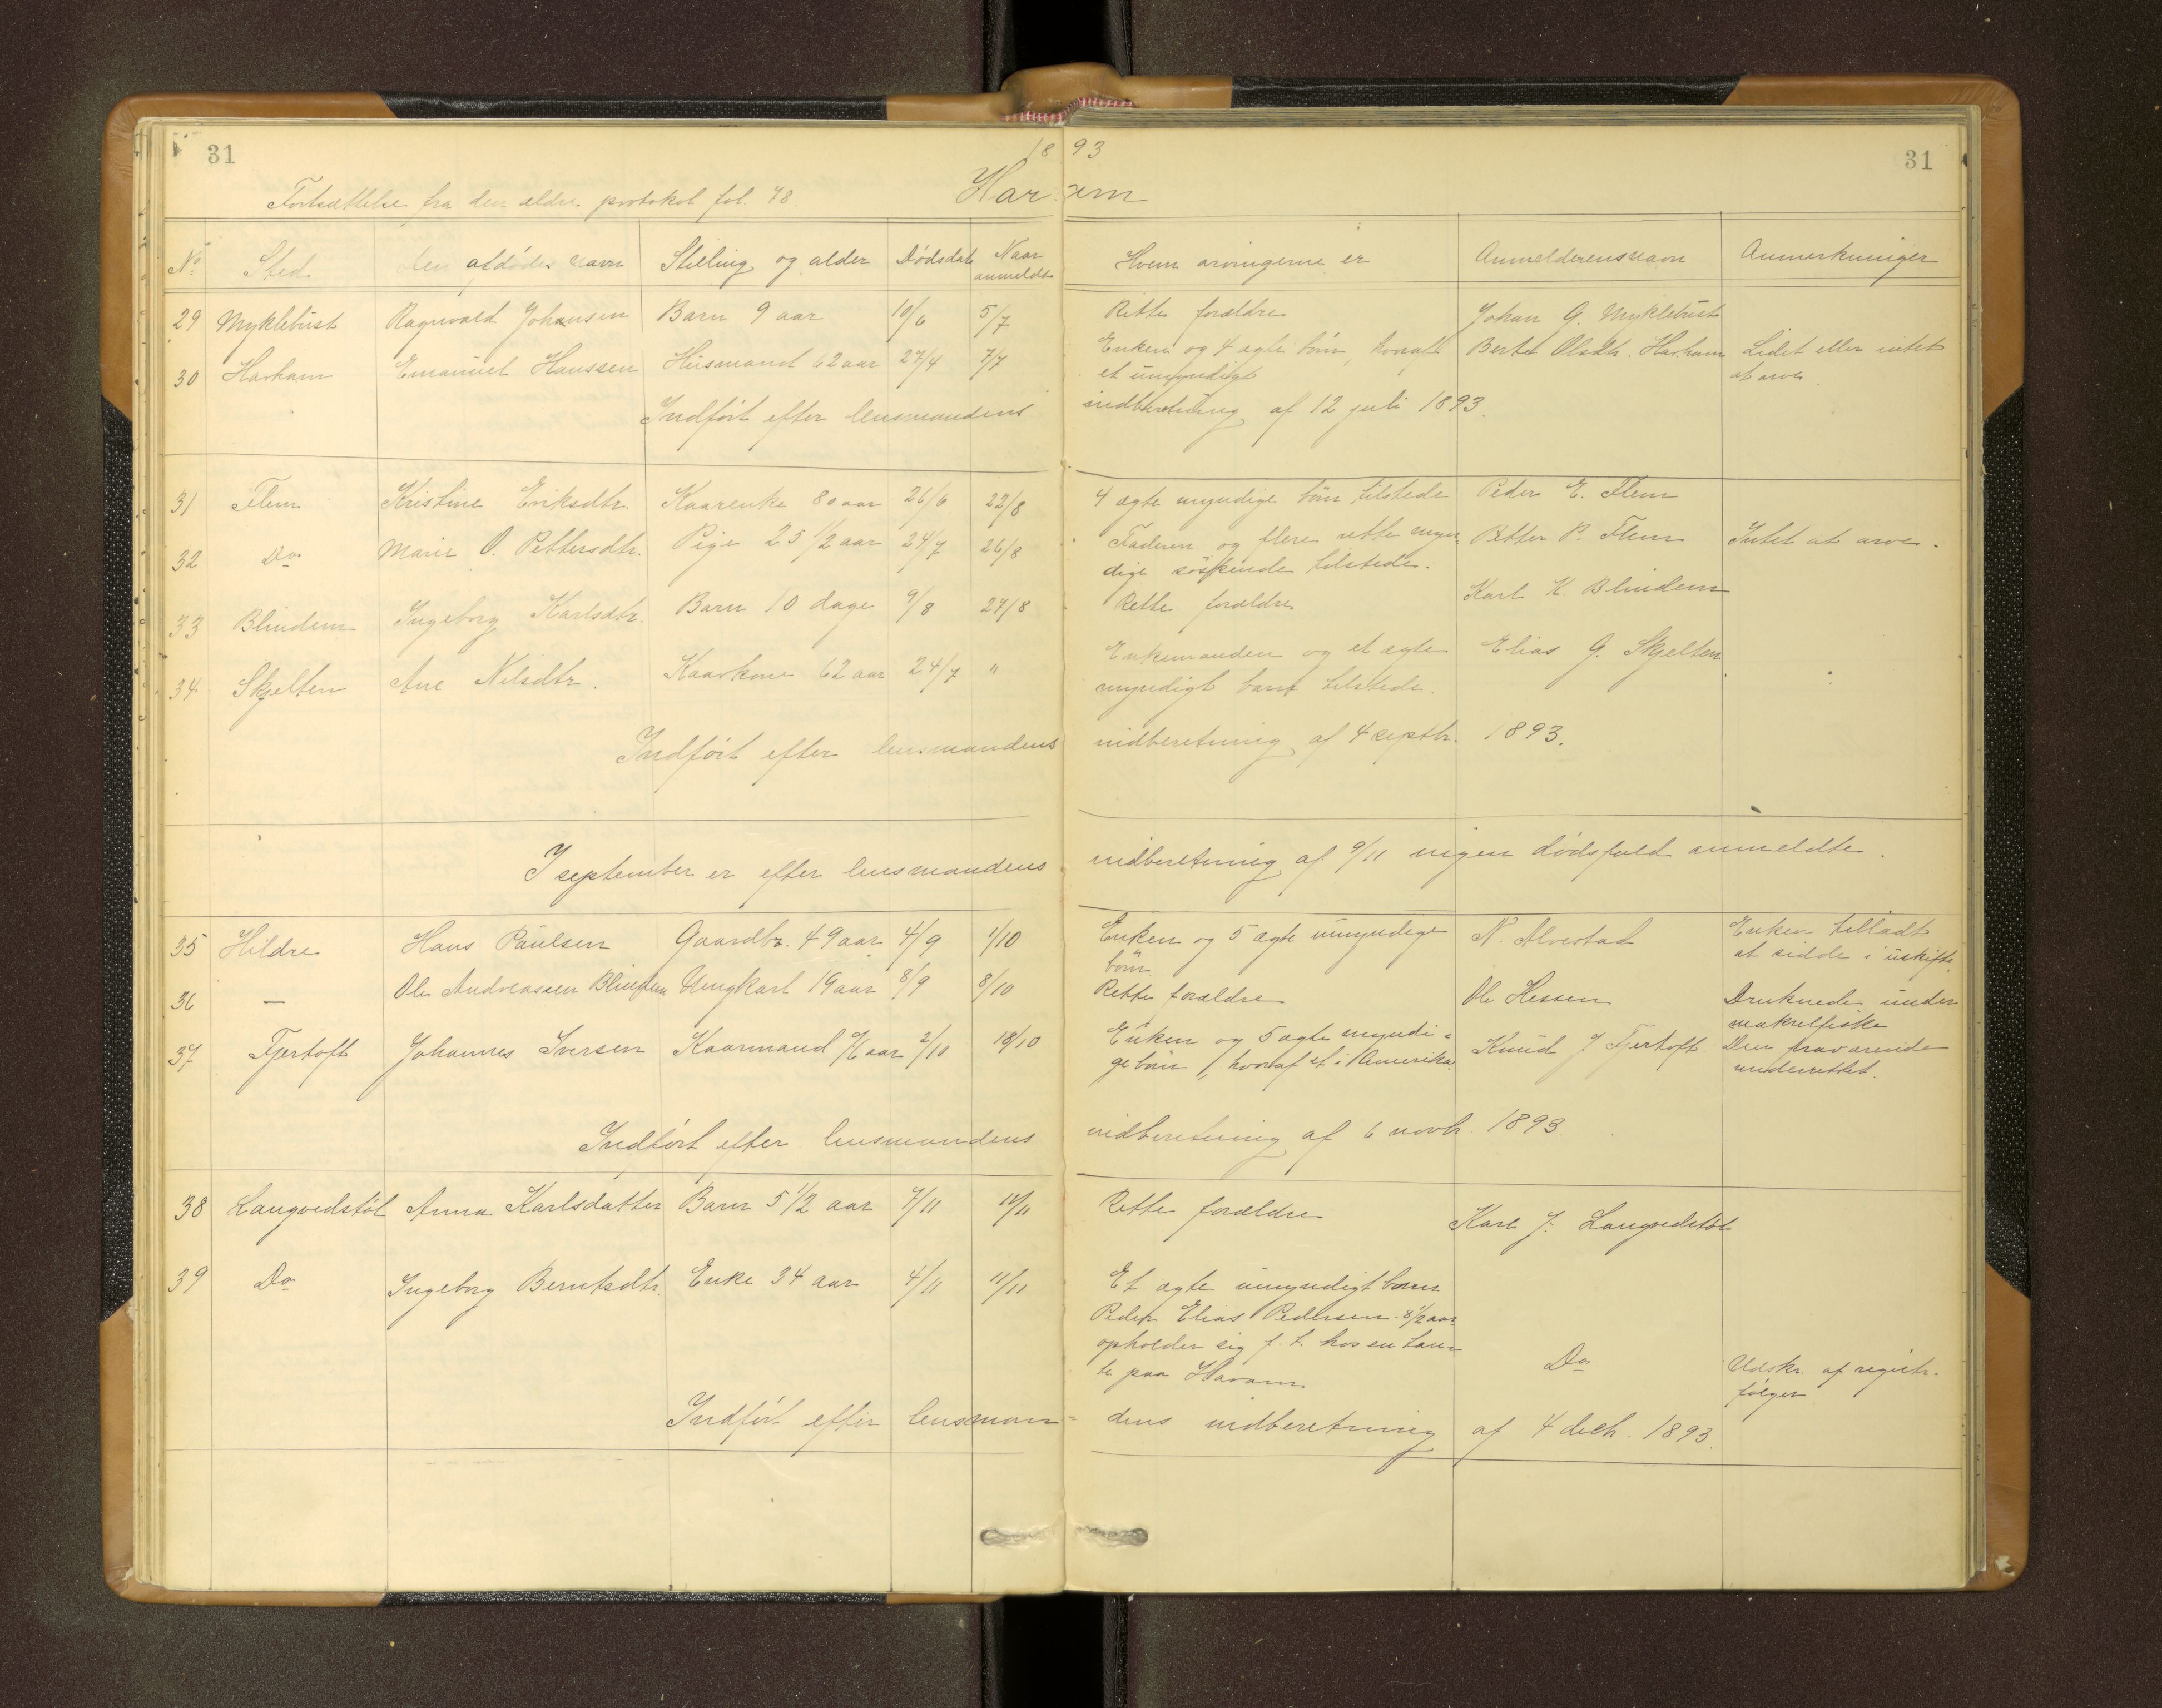 31
1893
31
Fortsættelse fra den ældre protokol fol. 48.
Haram
No Sted. Den afdødes navn Stilling og alder Dødsdat Naar anmeldt Hvem arvingerne er Anmelderens navn Anmerkninger
29 Myklebust Ragnvald Johansen Barn 9 aar 10/6 5/7 Rette forældre Johan G. Myklebust
30 Harham Emanuel Hanssen Husmand 62 aar 27/4 7/7 Enken og 4 ægte börn, hvoraf Berte Olsdtr. Harham Lidet eller intet
et umyndigt at arve.
Indfört efter lensmandens indberetning af 12 juli 1893.
31 Flem Kristine Eriksdtr. Kaarenke 80 aar 26/6 22/8 4 ægte myndige börn tilstede Peder E. Flem
32 Do Marie O. Pettersdtr. Pige 25 1/2 aar 24/7 26/8 Faderen og flere rette myn- Petter P. Flem Intet at arve.
dige söskende tilstede.
33 Blindem Ingeborg Karlsdtr. Barn 10 dage 9/8 27/8 Rette forældre Karl K. Blindem
34 Skjelten Ane Nilsdtr. Kaarkone 62 aar 24/7 " Enkemanden og et ægte Elias G. Skjelten
myndigt barn tilstede.
Indfört efter lensmandens indberetning af 4 septbr. 1893.
I september er efter lensmandens indberetning af 9/11 ingen dødsfald anmeldte.
35 Hildre Hans Paulsen Gaardbr. 49 aar 4/9 1/10 Enken og 5 ægte umyndige N. Alvestad Enken tilladt
börn. at sidde i uskifte.
36 — Ole Andreassen Blindem Ungkarl 19 aar 8/9 8/10 Rette forældre Ole Hessen Druknede under
makrelfiske
37 Fjertoft Johannes Iversen Kaarmand aar 2/10 18/10 Enken og 5 ægte myndi- Knud J. Fjertoft Den fraværende
ge börn, hvoraf et i Amerika. underrettet.
Indfört efter lensmandens indberetning af 6 novbr. 1893.
38 Langvedstöl Anna Karlsdatter Barn 5 1/2 aar 7/11 11/11 Rette forældre Karl J. Langvedstöl
39 Do Ingeborg Berntsdtr. Enke 34 aar 4/11 11/11 Et ægte umyndigt barn
Peder Elias Pedersen 8 1/2 aar
opholder sig f. t. hos en tan-
te paa Haram Do Udskr. af registr.
følger
Indfört efter lensman- dens indberetning af 4 decbr. 1893.